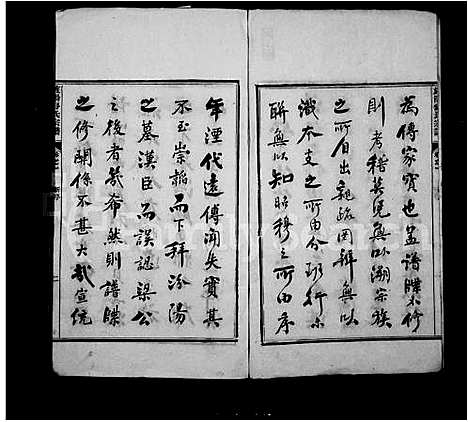 為傳家寶也蓋譜牒不修
則考稽莫憑無以溯宗族
之所自出親疏罔辨無以
識本支之所由分班行不
聯無以知昭穆之所由序
年湮代遠傳聞失實其
不至崇韜而下拜汾陽
之墓漢臣而誤認梁公
之後者幾希然則譜牒
之修關係不甚大哉宣統